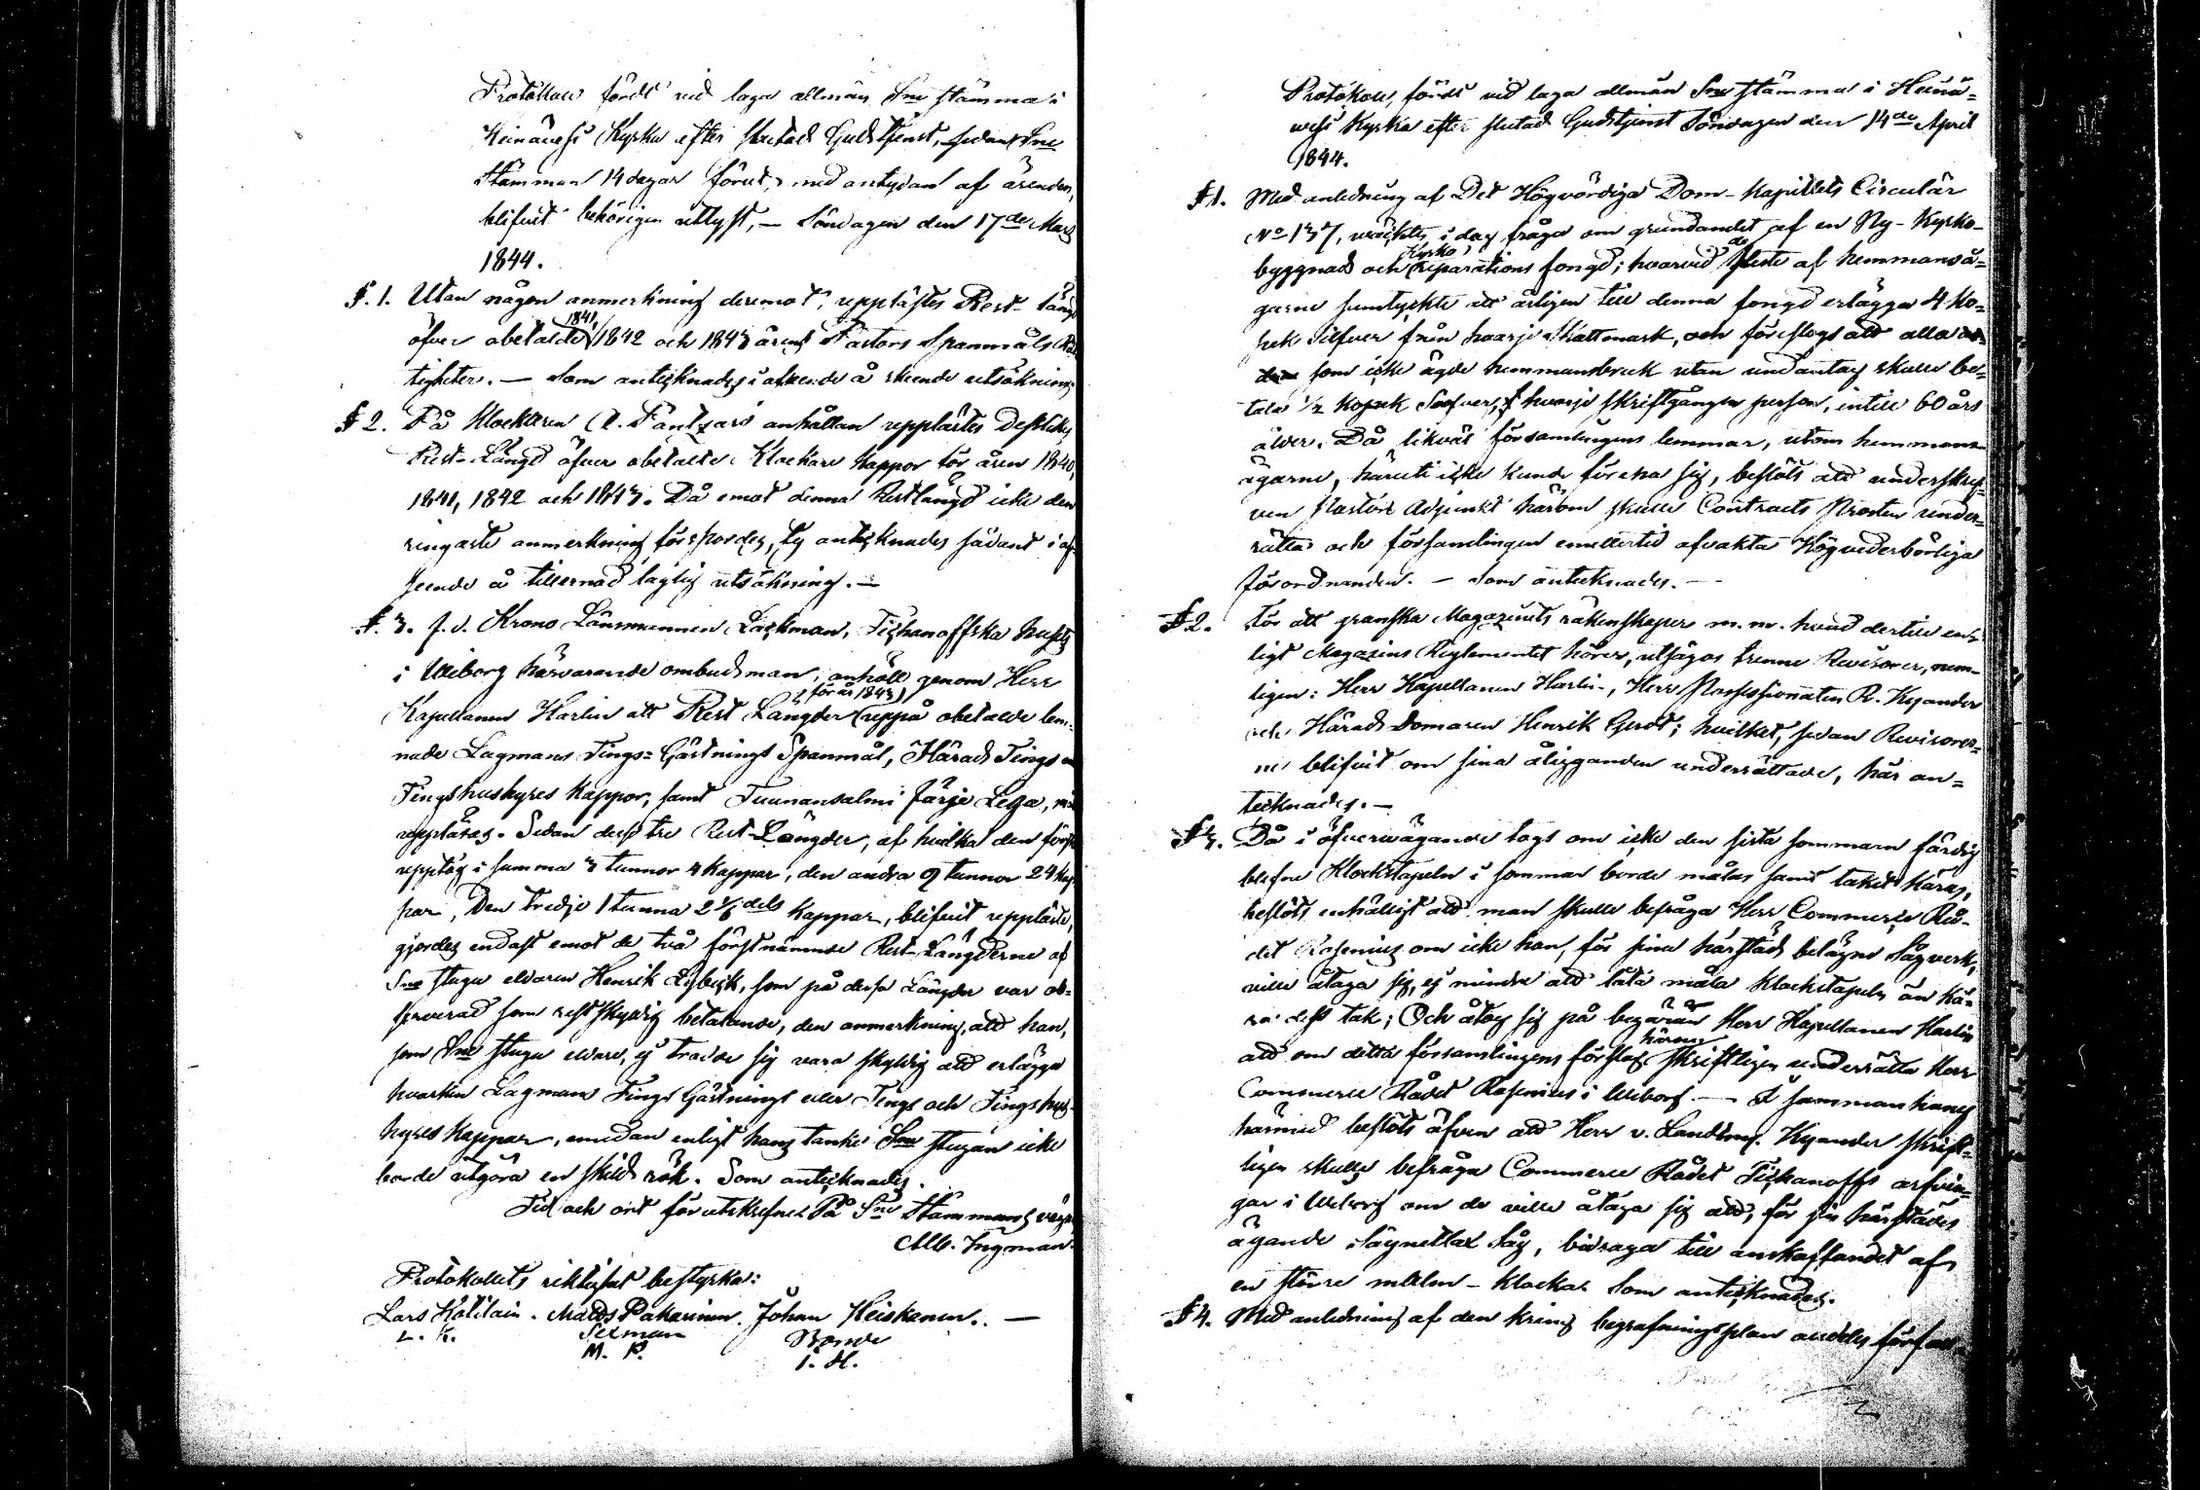 Protokoll fördt vid laga allmän Sne stämma i
Heinävesi Kyrka efter slutad Gudstjenst, sedan Sne
stämman 14 dagar förut, med antydan af ärenden,
blifvit behörigen utlyst, — Söndagen den 17de Mars
1844.
§. 1. Utan någon anmerkning deremot, upplästes Rest-längd
öfver obetalde 1841, 1842 och 1843 årens Pastors Spanmåls Rät-
tigheter. — Som antecknades i afseende å skeende utsökning
§ 2. På Klockaren C. Pantzars anhållan upplästes desslikes
Rest-Längd öfver obetalte Klockare kappor för åren 1840,
1841, 1842 och 1843. Då emot denna Restlängd icke den
ringaste anmerkning förspordes, ty antecknades sådant i af-
seende å tillernad laglig utsökning. —
§. 3. f. d. Krono Länsmannen Lackman, Tichanoffska husets
i Wiborg härvarande ombudsman, anhöll genom Herr
Kapellanen Harlin att Rest Längder (för år 1843) uppå obetalde lem-
nade Lagmans Tings-Gästnings Spanmål, Härads Tings
Tingshushyres kappor, samt Tuunansalmi färje Lega,
uppläsas. Sedan dess tre Rest-Längder, af hvilka den första
upptog i summa 3 tunnor 4 kappar, den andra 9 tunnor 24 kap-
par, Den tredje 1 tunna 2 dels kappar, blifvit uppläste,
gjordes endast emot de två förstnämnde Rest-Längderne af
Sne stugu elvaren Henrik Lybeck, som på dessa Längder var ob-
serverad som restskyldig betalande, den anmerkning, att han,
som Sne stugu elvare, ej trodde sig vara skyldig att erlägga
hvarken Lagmans Tings Gästnings eller Tings och Tingshus-
hyres kappar, emedan enligt hans tanke Sne stugan icke
borde utgöra en skild rök. Som antecknades.
Tid och ort förutskrefne. På Sne Stämmans vägnar
Alb. Ingman.
Protokollets riktighet bestyrka:
Lars Kolilain. Matts Pakarinen. Johan Heiskanen. —
L. K. Sexman Bonde
M. P. I. H.
Protokoll, fördt vid laga allmän Sne stämma i Heinä-
vesi Kyrka efter slutad Gudstjenst Söndagen den 14de April
1844.
§ 1. Med anledning af Det Högvördiga Dom-Kapitlets Circulär
No 137, väcktes i dag fråga om grundandet af en Ny-Kyrko-
byggnads och Kyrko reparations fongd; hvarvid de fleste af hemmansä-
garne samtyckte att årligen till denna fongd erlägga 4 ko-
pek Silfver från hvarje Skattmark, och föreslogs att alla
som icke ägde hemmansbruk utan undantag skulle be-
tala 1/2 kopek Silfver, för hvarje skriftgången person, intill 60 års
ålder. Då likväl församlingens lemmar, utom hemmans-
ägarne, häruti icke kunde förena sig, beslöts att underskref-
ven Pastors Adjunkt härom skulle Contracts Prosten under-
rätta och församlingen emellertid afvakta Högvederbörliga
förordnanden. — Som antecknades. —
§ 2. För att granska Magazinets räkenskaper m. m. hvad dertill en-
ligt Magazins Reglementet hörer, utsågos trenne Revisorer, nem-
ligen: Herr Kapellanen Harlin, Herr Possessionaten R. Kyander
och Härads Domaren Henrik Gerdt; hvilket, sedan Revisorer-
ne blifvit om sina åligganden underrättade, här an-
tecknades. —
§ 3. Då i öfvervägande togs om icke den sista sommarn färdig
blefne Klockstapeln i sommar borde målas samt taket käras,
beslöts enhälligt att man skulle befråga Herr Commerce Rå-
det Rosenius om icke han, för sina härstäds belägne Sågverk,
ville åtaga sig, ej mindre att låta måla klockstapeln än kä-
ra dess tak; Och åtog sig på begäran Herr Kapellanen Harlin
att om detta församlingens förslag härom skriftligen underrätta Herr
Commerce Rådet Rosenius i Wiborg. — I sammanhang
härmed beslöts äfven att Herr v. Landtm. Kyander skrift-
ligen skulle befråga Commerce Rådet Tichanoffs arfvin-
gar i Wiborg om de ville åtaga sig att, för sin härstädes
ägande Säynetlax Såg, bidraga till anskaffandet af
en större malm-klocka. Som antecknades.
§ 4. Med anledning af den kring begrafningsplan